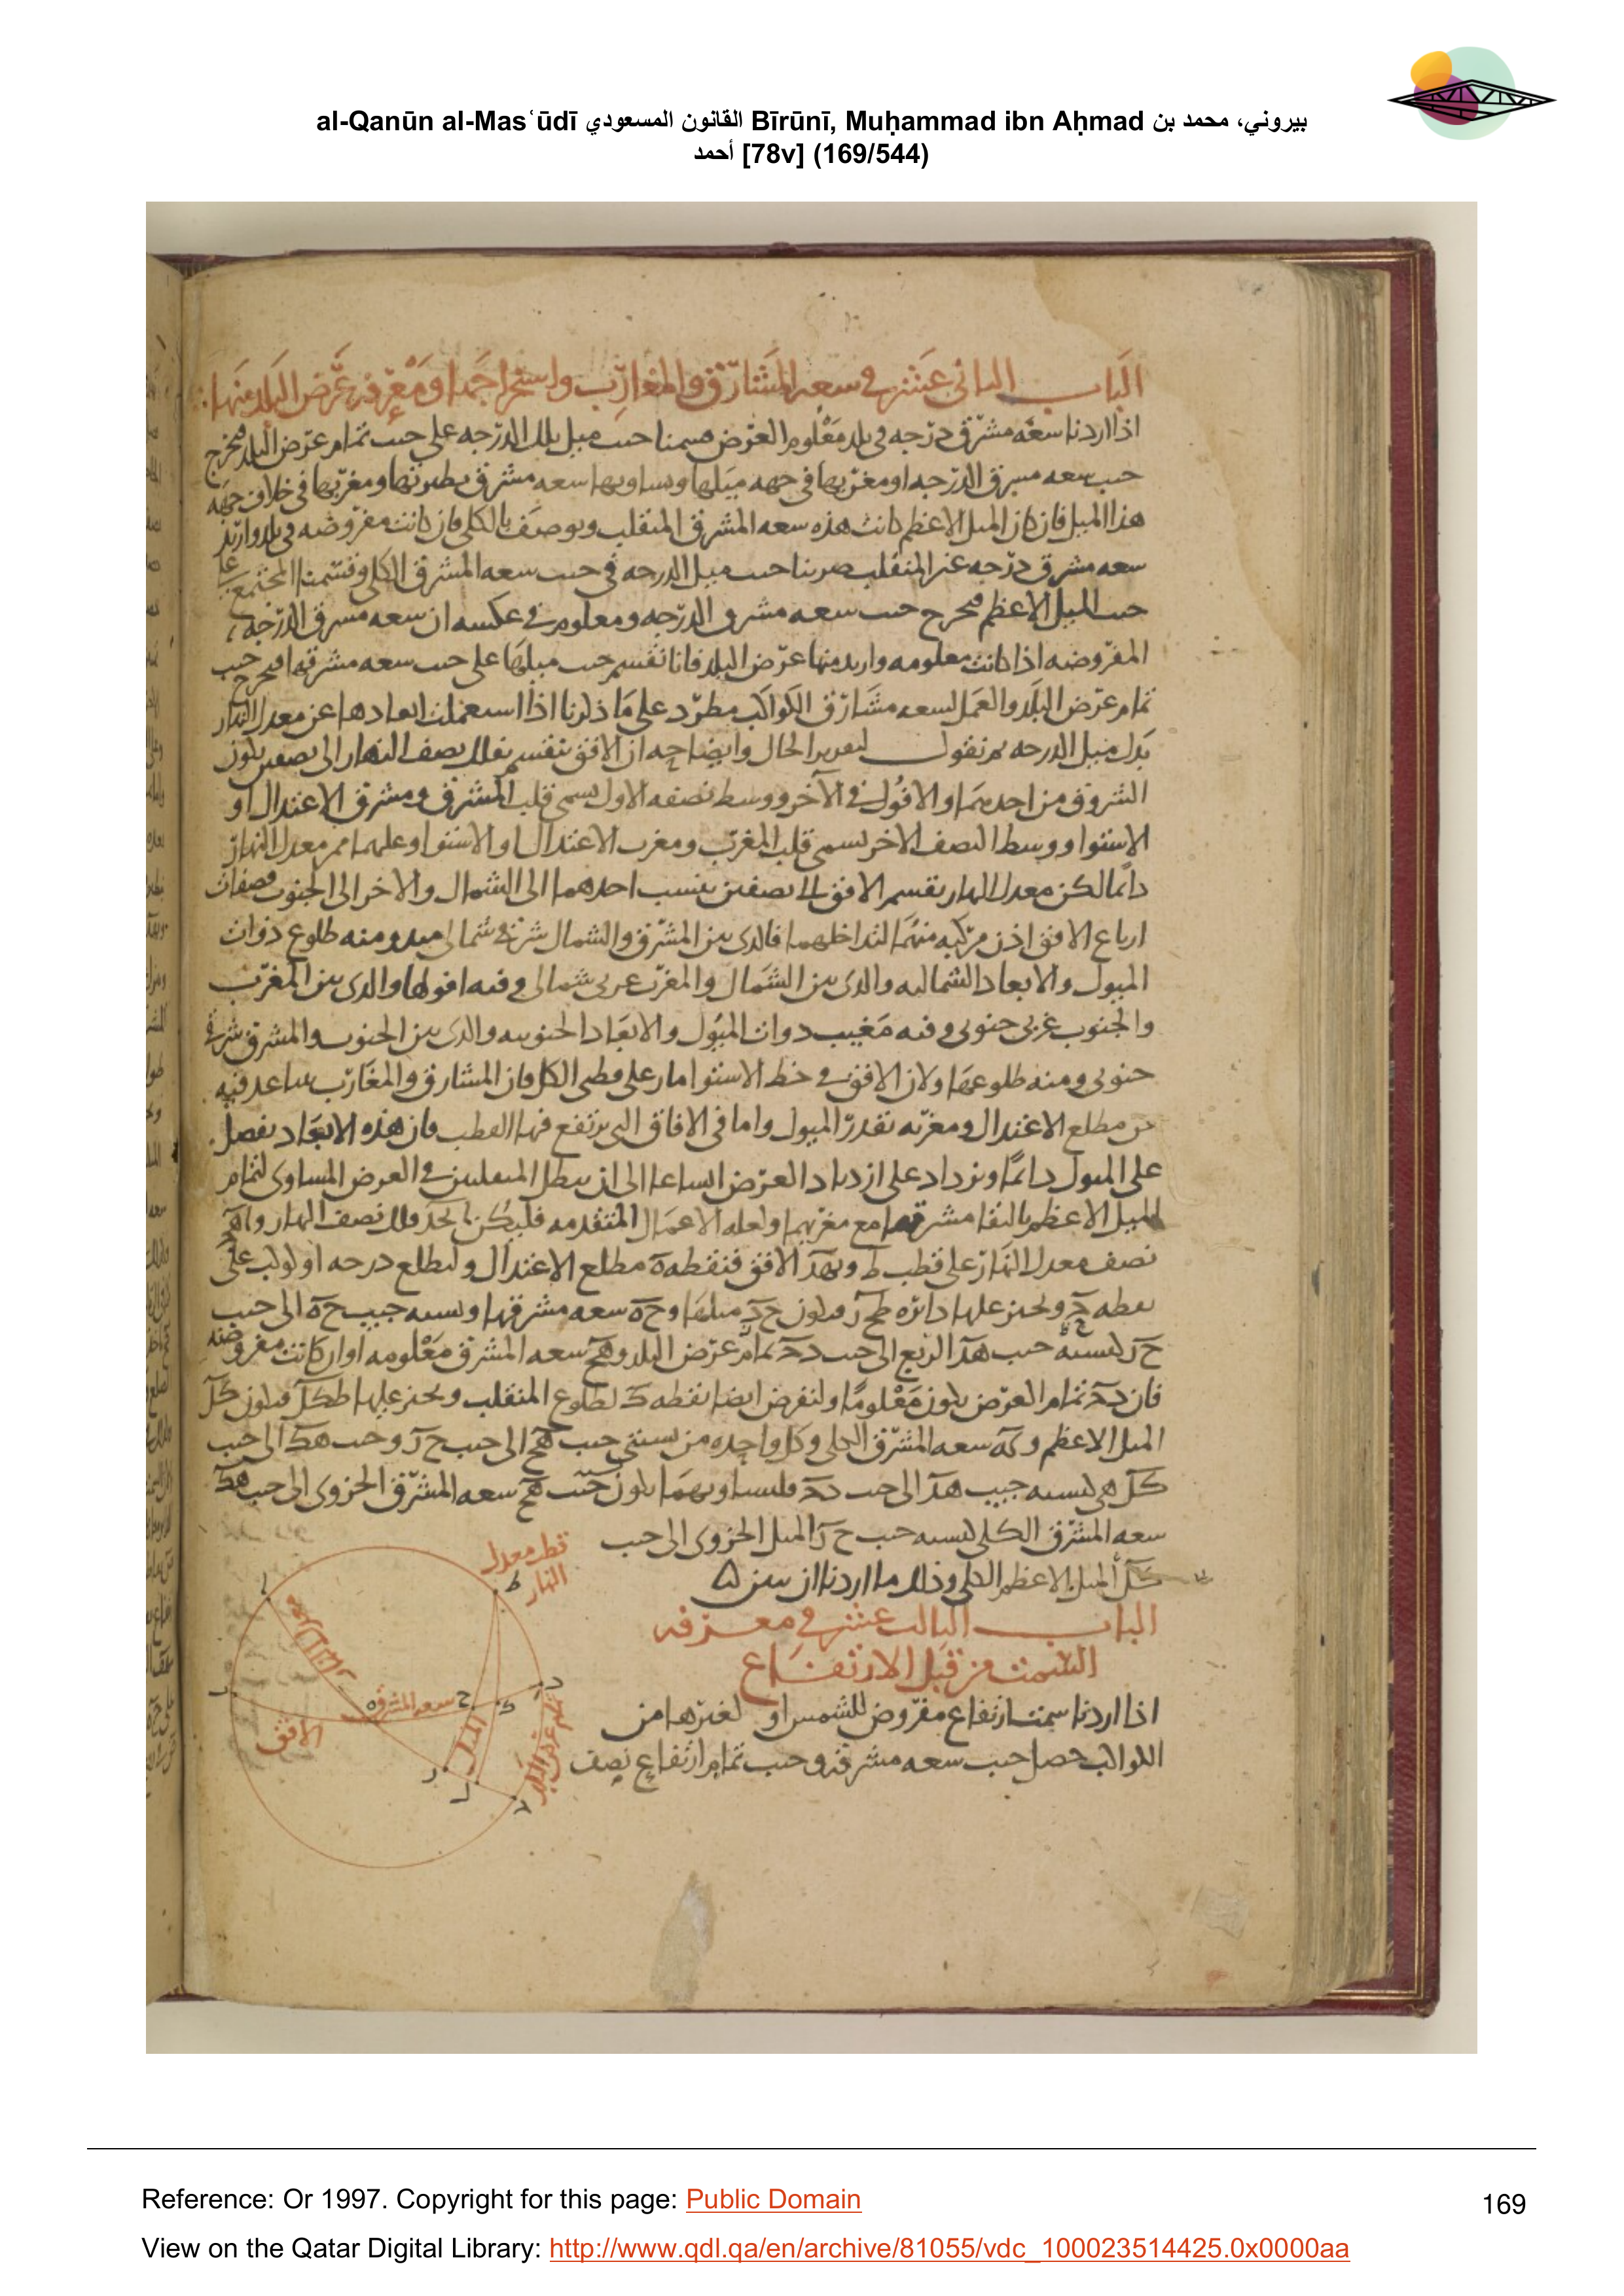 al-Qanūn al-Masʿūdī القانون المسعودي Bīrūnī, Muḥammad ibn Aḥmad بيروني، محمد بن
أحمد [78v] (169/544)
الباب الثاني عشر في سعه المشارق والمغارب واستخراجها ومعرفه عرض البلد منها
اذا اردنا سعه مشرق درجه في بلد معلوم العرض قسمنا جيب ميل تلك الدرجه على جيب تمام عرض البلد فيخرج
جيب سعه مشرق الدرجه او مغربها في جهه ميلها ويساويها سعه مشرق نظيرتها ومغربها في خلاف جهه
هذا الميل فان كان الميل الاعظم كانت هذه سعه المشرق المنقلب ويوصف بالكلي فان كانت مفروضه في بلد واريد
سعه مشرق درجه غير المنقلب ضربنا جيب ميل الدرجه في جيب سعه المشرق الكلي وقسمنا المجتمع على
جيب الميل الاعظم فيخرج جيب سعه مشرق الدرجه ومعلوم في عكسه ان سعه مشرق الدرجه
المفروضه اذا كانت معلومه واريد منها عرض البلد فانا نقسم جيب ميلها على جيب سعه مشرقها فيخرج جيب
تمام عرض البلد والعمل لسعه مشارق الكواكب مطرد على ما ذكرنا اذا استعملت ابعادها عن معدل النهار
بدل ميل الدرجه ثم نقول لتقرير الحال وايضاحه ان الافق ينقسم بفلك نصف النهار الى نصفين يكون
الشروق من احدهما والافول في الآخر ووسط نصفه الاول يسمى قلب المشرق ومشرق الاعتدال او
الاستوا ووسط النصف الاخر يسمى قلب المغرب ومغرب الاعتدال او الاستوا وعليهما ممر معدل النهار
دائما لكن معدل النهار يقسم الافق الى نصفين ينسب احدهما الى الشمال والاخر الى الجنوب فصفات
ارباع الافق اذن مركبه منهما لتداخلهما فالذي بين المشرق والشمال شرقي شمالي ومنه طلوع ذوات
الميول والابعاد الشماليه والذي بين الشمال والمغرب غربي شمالي وفيه افولها والذي بين المغرب
والجنوب غربي جنوبي وفيه مغيب ذوات الميول والابعاد الجنوبيه والذي بين الجنوب والمشرق شرقي
جنوبي ومنه طلوعها ولان الافق في خط الاستوا مار على قطبي الكل فان المشارق والمغارب تتباعد فيه
عن مطلع الاعتدال ومغربه بقدر الميول واما في الافاق التي يرتفع فيها القطب فان هذه الابعاد تفضل
على الميول دائما وتزداد على ازدياد العرض اتساعا الى ان يبطل المنقلبين في العرض المساوي لتمام
الميل الاعظم بالتقا مشرقهما مع مغربهما ولعله الاعمال المتقدمه فليكن ا ب ج د فلك نصف النهار و ا ه ج
نصف معدل النهار على قطب ط و ب ه د الافق فنقطه ه مطلع الاعتدال وليطلع درجه او كوكب على
نقطه ح ونجيز عليها دائره ط ح ز فيكون ح ز ميلها و ح ه سعه مشرقها ونسبه جيب ح ه الى جيب
ح ز كنسبه جيب ه د الربع الى جيب د ج تمام عرض البلد و ه ح سعه المشرق معلومه او ان كانت مفروضه
فان د ج تمام العرض يكون معلوما ولنفرض ايضا نقطه ك لطلوع المنقلب ونجيز عليها ط ك ل فيكون ك ل
الميل الاعظم و ك ه سعه المشرق الكلي وكل واحده من نسبتي جيب ه ح الى جيب ح ز وجيب ه ك الى جيب
ك ل هي كنسبه جيب ه د الى جيب د ج فلتساويهما يكون جيب ه ح سعه المشرق الجزوي الى جيب ه ك
سعه المشرق الكلي كنسبه جيب ح ز الميل الجزوي الى جيب
ك ل الميل الاعظم الكلي وذلك ما اردنا ان نبين
الباب الثالث عشر في معرفه
السمت من قبل الارتفاع
اذا اردنا سمت ارتفاع مفروض للشمس او لغيرها من
الكواكب حصل جيب سعه مشرقه وجيب تمام ارتفاع نصف
قطب معدل
النهار
ط
ا
ب
ه
سعه المشرق
ح
ك
د
الافق
الميل
ز
ل
ج
تمام عرض البلد
معدل النهار
Reference: Or 1997. Copyright for this page: Public Domain
169
View on the Qatar Digital Library: http://www.qdl.qa/en/archive/81055/vdc_100023514425.0x0000aa